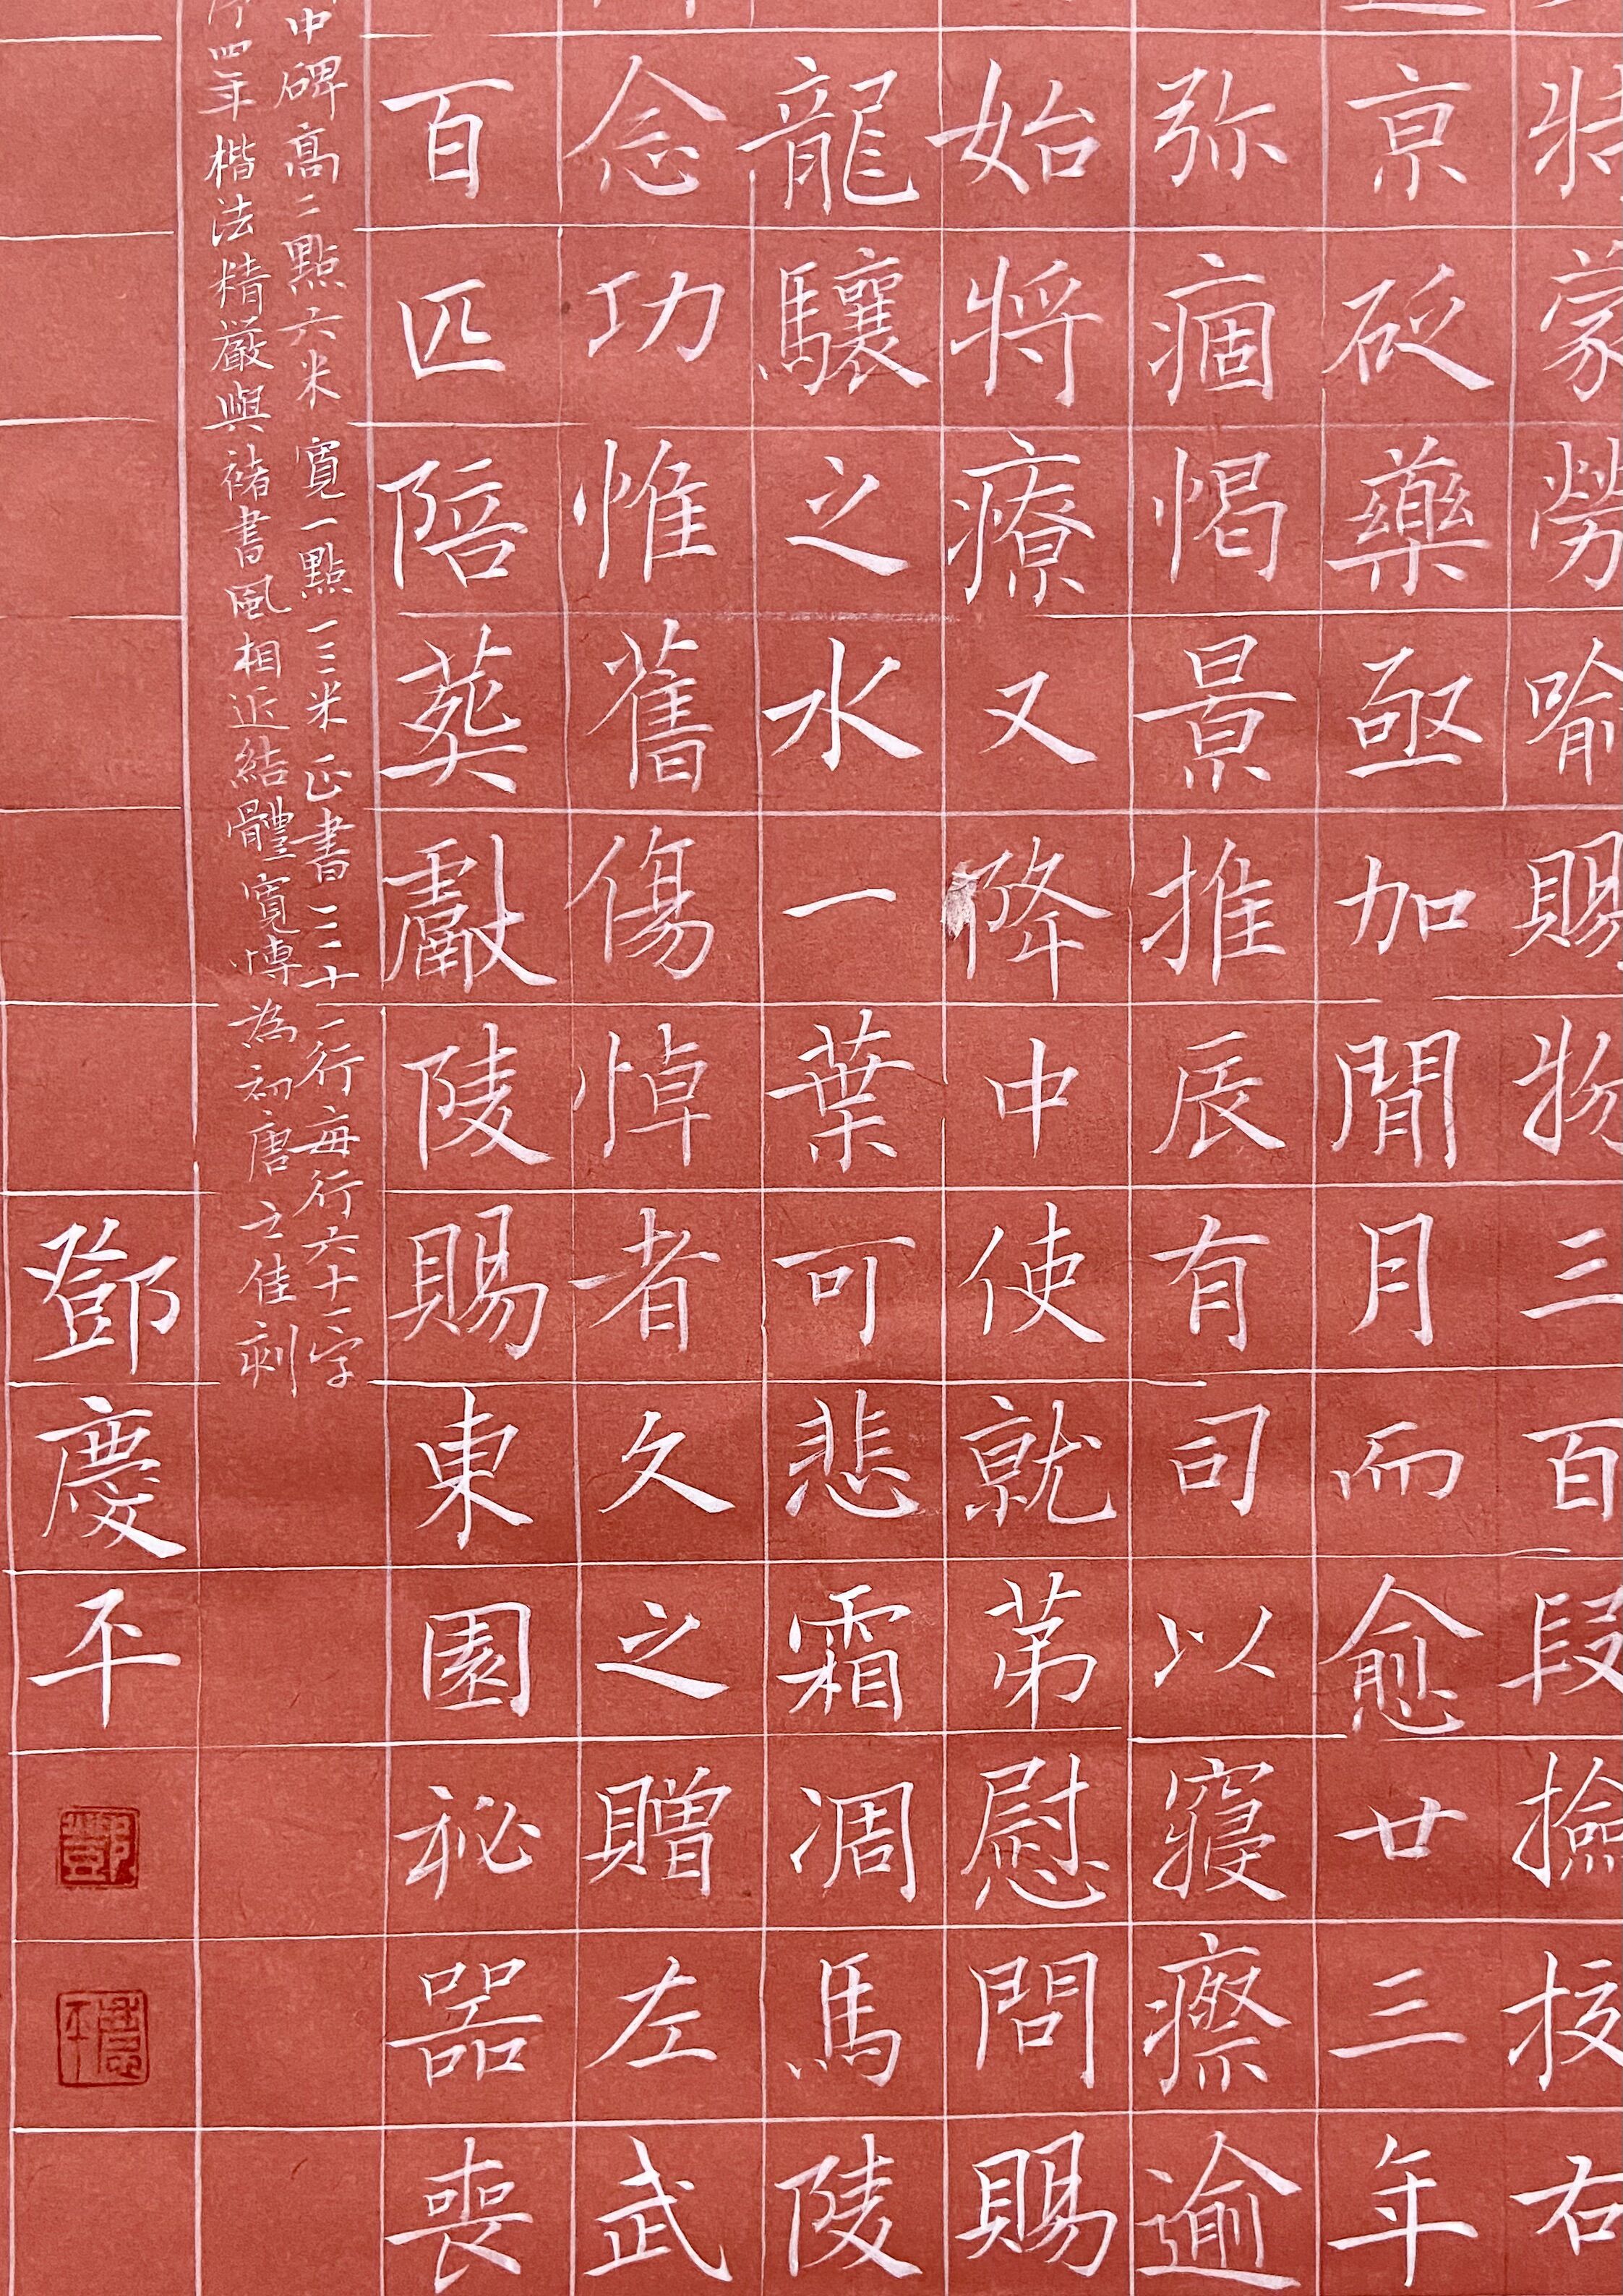 壯蒙勞喻賜物三百段撿挍右
京砭藥亟加閒月而愈廿三年
弥痼愒景推辰有司以寢瘵逾
始將療又降中使就第慰問賜
龍驤之水一葉可悲霜凋馬陵
念功惟舊傷悼者久之贈左武
百匹陪葬獻陵賜東園祕器喪
中碑高二點六米寬一點一三米正書三十一行每行六十一字
四年楷法精嚴與褚書風相近結體寬博為初唐之佳刻
鄧慶平
鄧
慶平